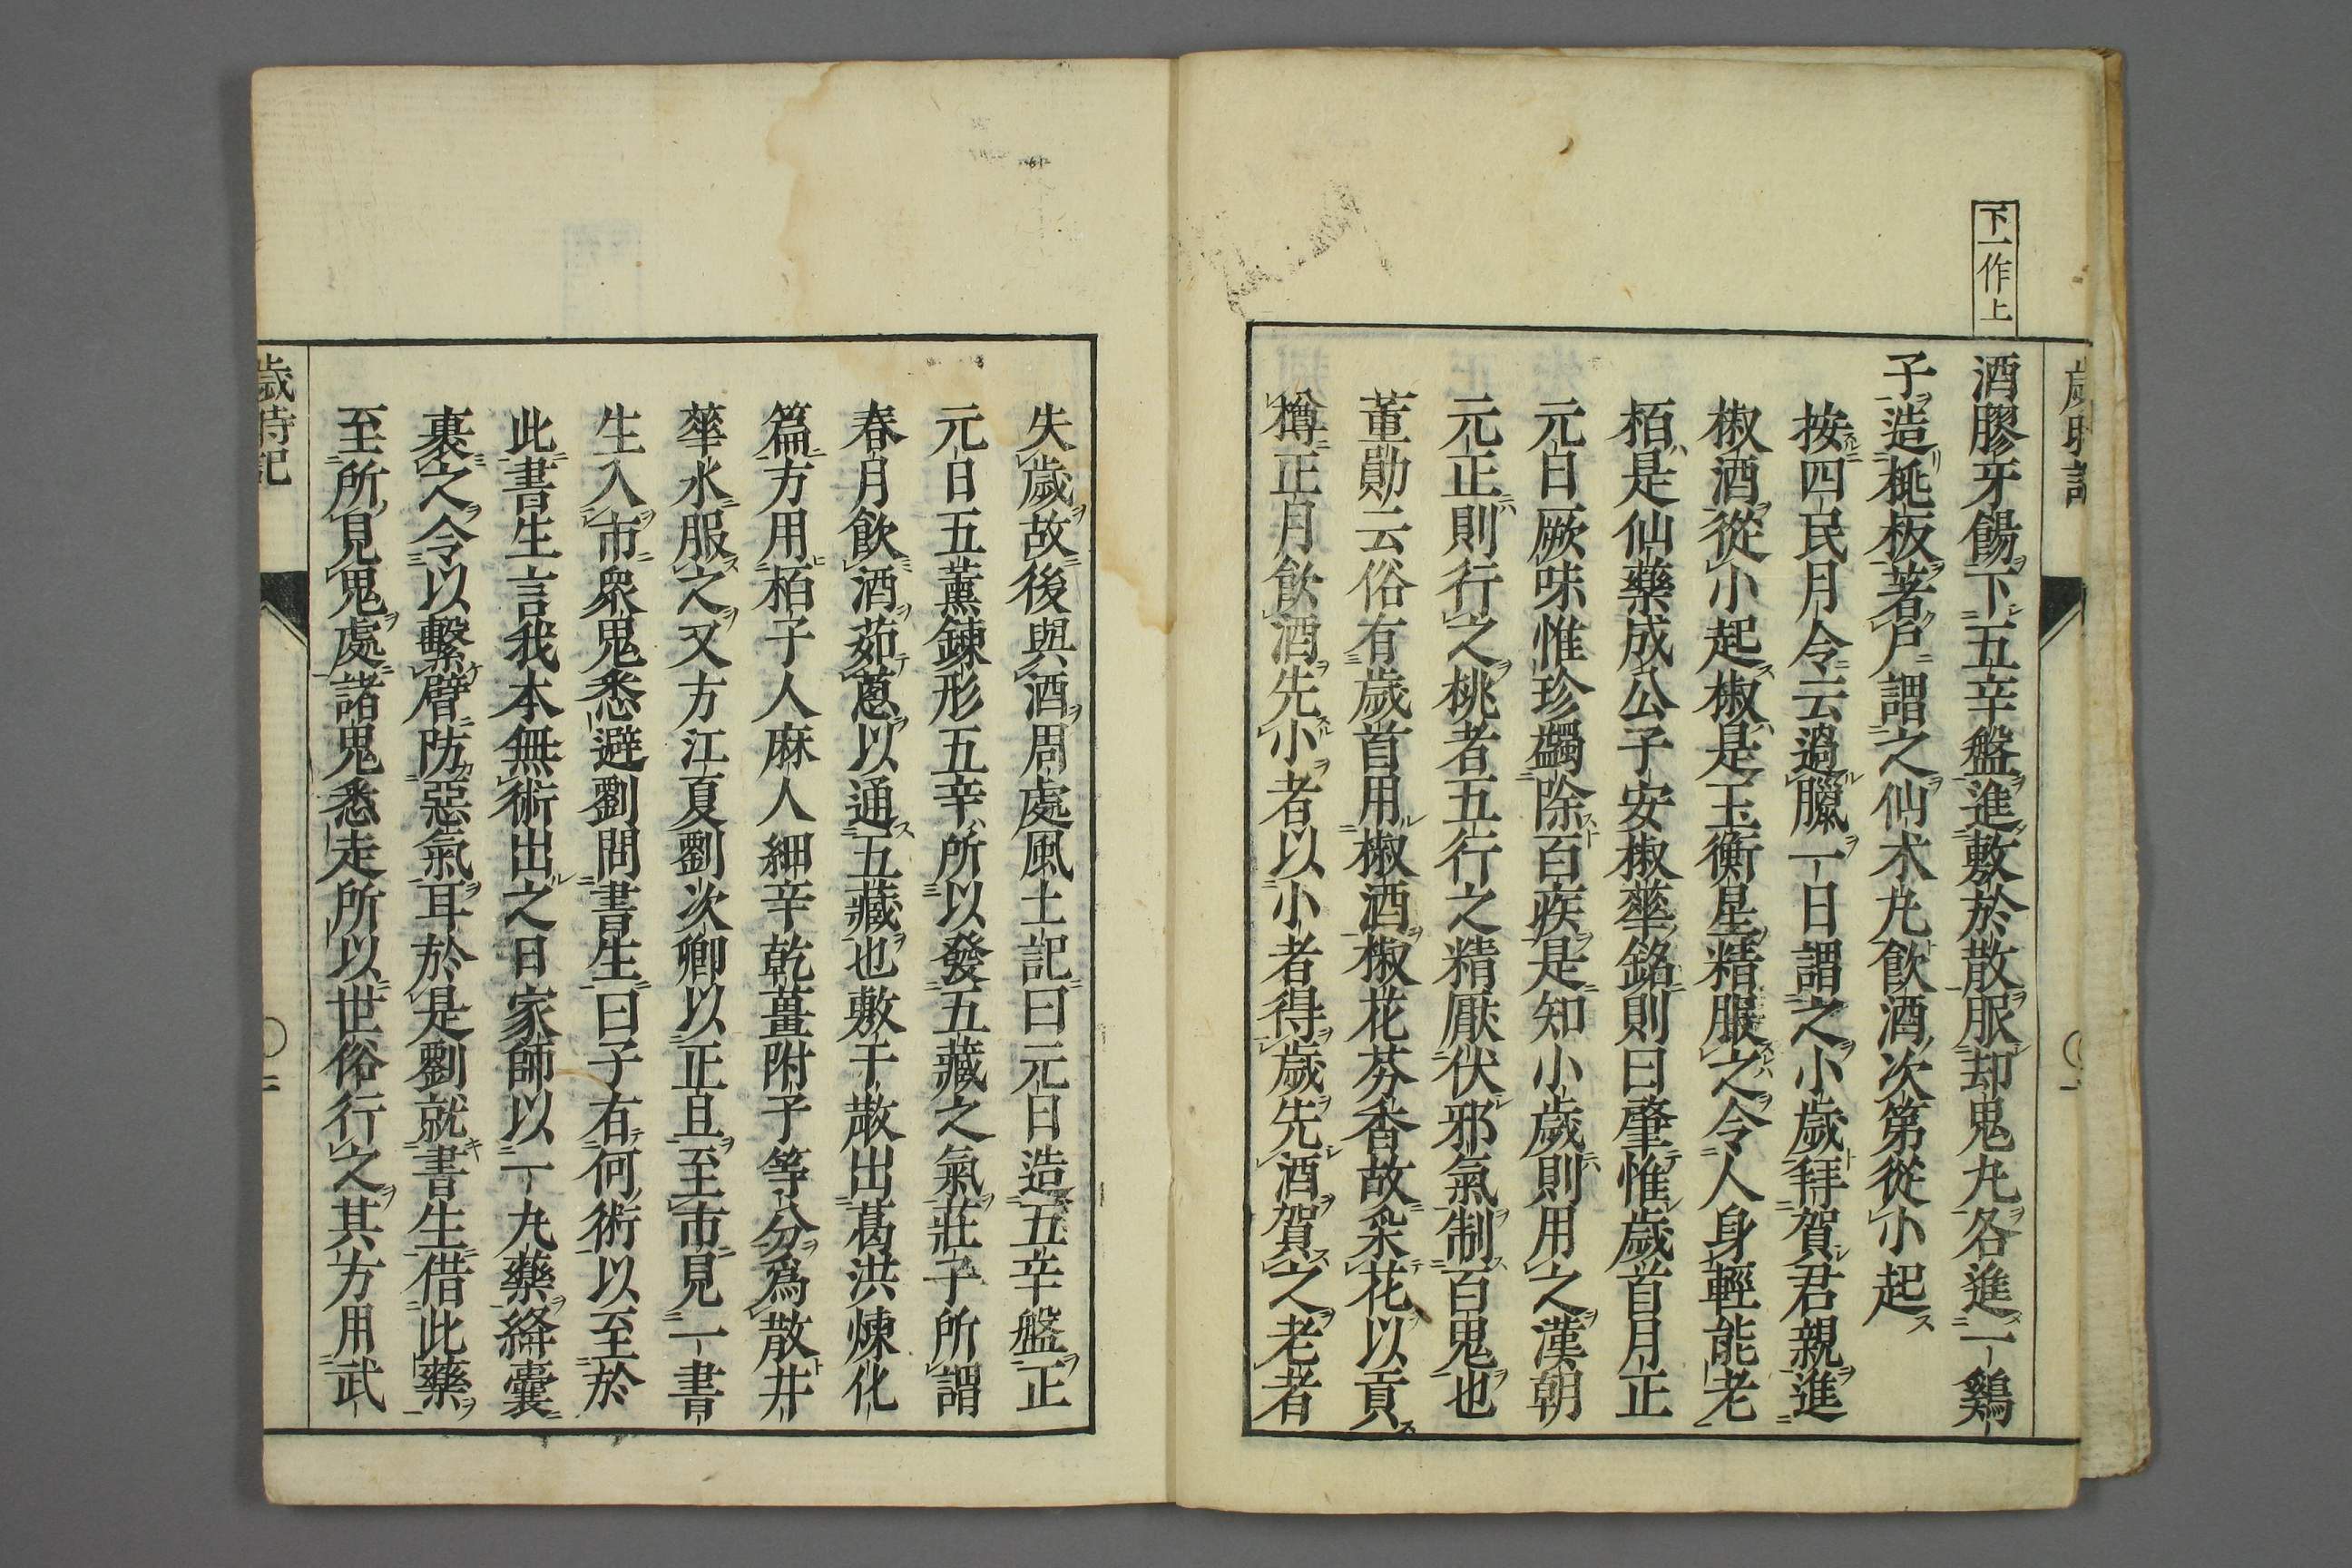 下一作上
歲時記
酒膠牙餳下五辛盤進敷於散服却鬼九各進一鷄
子造桃板著戶謂之仙木九飲酒次第從小起
按四民月令云過臘一日謂之小歲拜賀君親進
椒酒從小起椒是玉衡星精服之令人身輕能老
栢是仙藥成公子安椒華銘則曰肇惟歲首月正
元日厥味惟珍蠲除百疾是知小歲則用之漢朝
元正則行之桃者五行之精厭伏邪氣制百鬼也
董勛云俗有歲首用椒酒椒花芬香故采花以貢
樽正月飲酒先小者以小者得歲先酒賀之老者
失歲故後與酒周處風土記曰元日造五辛盤正
元日五薰鍊形五辛所以發五藏之氣莊子所謂
春月飲酒茹蔥以通五藏也敷于散出葛洪煉化
篇方用栢子人麻人細辛乾薑附子等分爲散井
華水服之又方江夏劉次卿以正旦至市見一書
生入市眾鬼悉避劉問書生曰子有何術以至於
此書生言我本無術出之日家師以一九藥絳囊
裹之令以繫臂防惡氣耳於是劉就書生借此藥
至所見鬼處諸鬼悉走所以世俗行之其方用武
歲時記
〇二